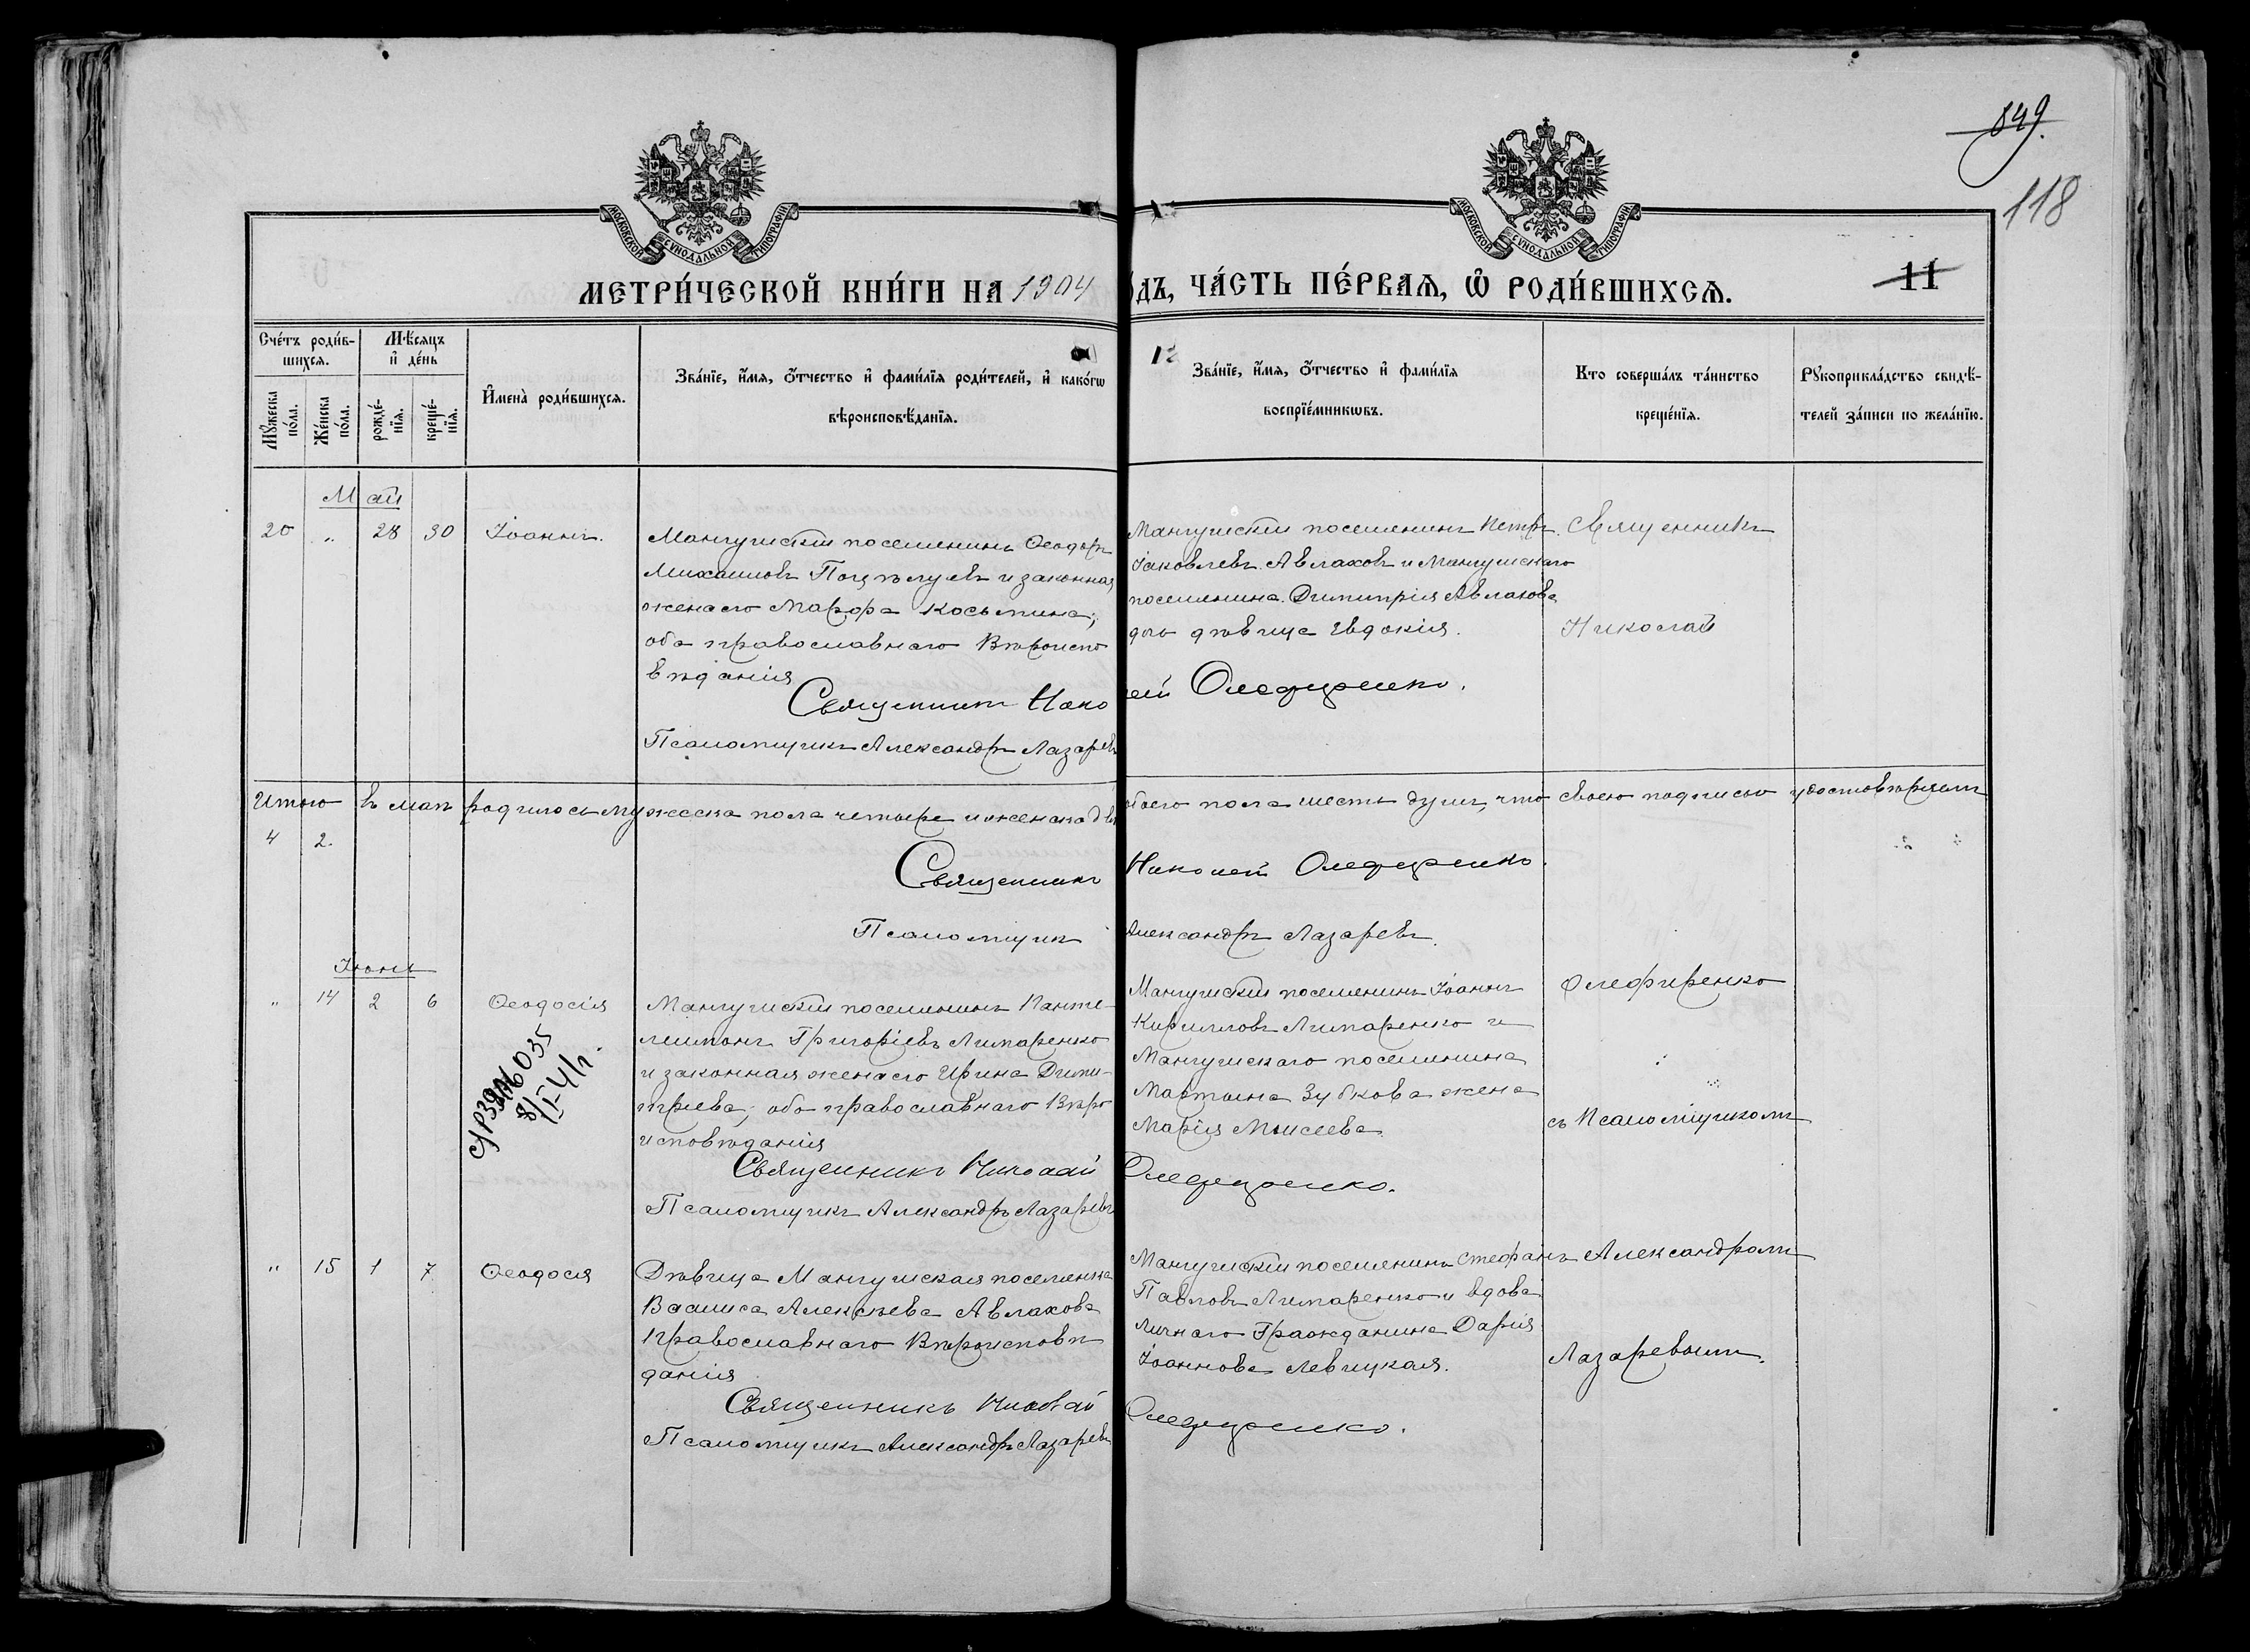 849.
118
МОСКОВСКОЙ СУНОДАЛЬНОЙ ТИПОГРАФІИ
МОСКОВСКОЙ СУНОДАЛЬНОЙ ТИПОГРАФІИ
МЕТРИ́ЧЕСКОЙ КНИ́ГИ НА 1904
ДЪ, ЧА́СТЬ ПЕ́РВАЯ, Ѡ РОДИ́ВШИХСЯ.
11
Сче́тъ роди́в-
шихся.
Мѣ́сяцъ
и҆ де́нь
Мꙋ́жеска по́ла.
Же́нска по́ла.
рожде́-
нїя.
креще́-
нїя.
И҆мена̀ роди́вшихся.
Зва́нїе, и҆́мя, ѻ҆́тчество и҆ фами́лїя роди́телей, и҆ како́гѡ
вѣроисповѣ́данїя.
12
Зва́нїе, и҆́мя, ѻ҆́тчество и҆ фами́лїя
воспрїе́мникѡвъ.
Кто соверша́лъ та́инство
креще́нїя.
Рꙋкоприкла́дство свидѣ́-
телей за́писи по жела́нїю.
Май
20 " 28 30 Іоаннъ.
Мангушскій поселянинъ Ѳеодоръ
Михаиловъ Поцѣлуевъ и законная
жена его Марфа Косьмина;
оба православнаго Вѣроиспо
вѣданія
Священникъ Нико
Псаломщикъ Александръ Лазаревъ
Мангушскій поселянинъ Петръ
Іаковлевъ Авлаховъ и Мангушскаго
поселянина Димитрія Авлахова
дочь дѣвица Евдокія.
лай Олефиренко.
Священникъ
Николай
Итого въ маѣ родилось мужеска пола четыре и женска двѣ
обоего пола шесть душъ, что своею подписью удостовѣряемъ
4 2.
Священникъ
Николай Олефиренко.
Псаломщик
Александръ Лазаревъ.
Іюнь
" 14 2 6 Ѳеодосія
Мангушскій поселянинъ Панте-
леимонъ Григоріевъ Лимаренко
и законная жена его Ирина Дими-
тріева; оба православнаго Вѣро
исповѣданія
Священникъ Николай
Псаломщикъ Александръ Лазаревъ
Мангушскій поселянинъ Іоаннъ
Кирилловъ Лимаренко и
Мангушскаго поселянина
Мартына Зубкова жена
Марія Моисеева.
Олефиренко.
Олефиренко
съ Псаломщикомъ
" 15 1 7 Ѳеодосія
Дѣвица Мангушская поселянка
Васлиса Алексѣева Авлахова
православнаго Вѣроисповѣ
данія
Священникъ Николай
Псаломщикъ Александръ Лазаревъ
Мангушскій поселянинъ Стефанъ
Павловъ Лимаренко и вдова
личнаго Гражданина Дарія
Іоаннова Левицкая.
Олефиренко.
Александромъ
Лазаревымъ.